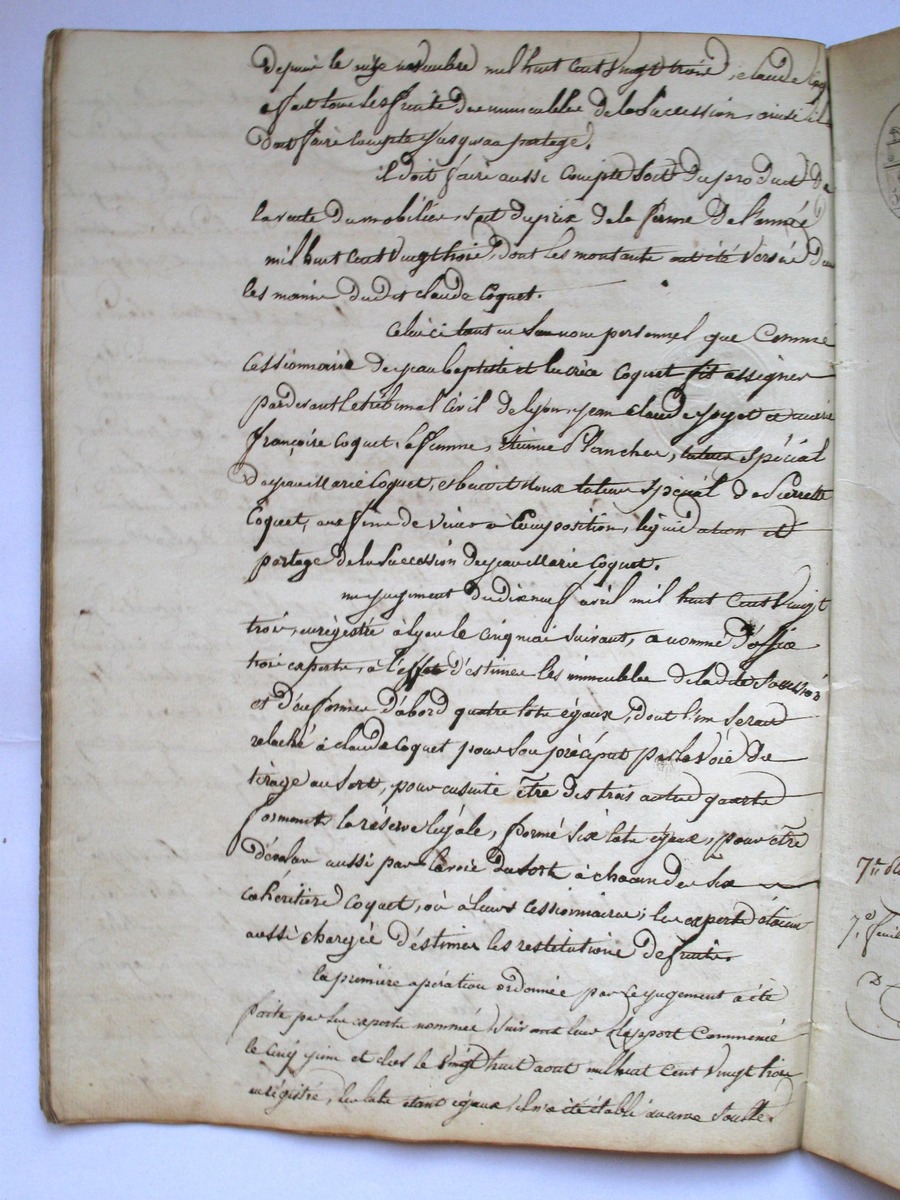 depuis le onze novembre mil huit cent vingt trois, claude Coq
a fait tous les fruits des immeubles de la succession, ainsi il
doit faire compte jusqu'au partage.
il doit faire aussi compte soit du produit de
la vente du mobilier, soit du prix de la ferme de l'année
mil huit cent vingt trois, dont les montants ont été versés dans
les mains dudit claude Coquet.
Celui ci tant en son nom personnel que comme
cessionnaire de jean baptiste et lucrèce Coquet fit assigner
pardevant le tribunal civil de lyon, jean claude joyet et marie
françoise Coquet, sa femme, étienne Plancher, tuteur spécial
de jean Marie Coquet, et tuteur spécial de Pierrette
Coquet, aux fins de venir à Composition, liquidation et
partage de la succession de jean Marie Coquet.
un jugement du dix neuf avril mil huit cent vingt
trois, enregistré à lyon le cinq mai suivant, a nommé d'office
trois experts, à l'effet d'estimer les immeubles de ladite Succession
et d'en former d'abord quatre lots égaux, dont l'un serait
relaché à claude Coquet pour son préciput par la voie du
tirage au sort, pour ensuite être des trois autres quarts
formant la réserve légale, formé six lots égaux, pour être
dévolus aussi par la voie du sort à chacun des six
cohéritiers Coquet, où à leurs cessionnaires; les experts étaient
aussi chargés d'éstimer les restitutions de fruits.
la première opération ordonnée par le jugement a été
faite par les experts nommés suivant leur Rapport Commencé
le cinq juin et clos le vingt huit aout mil huit cent vingt trois
enregistré, les lots étant égaux, il n'a été établi aucune soulte.
7.e
7.e feuil